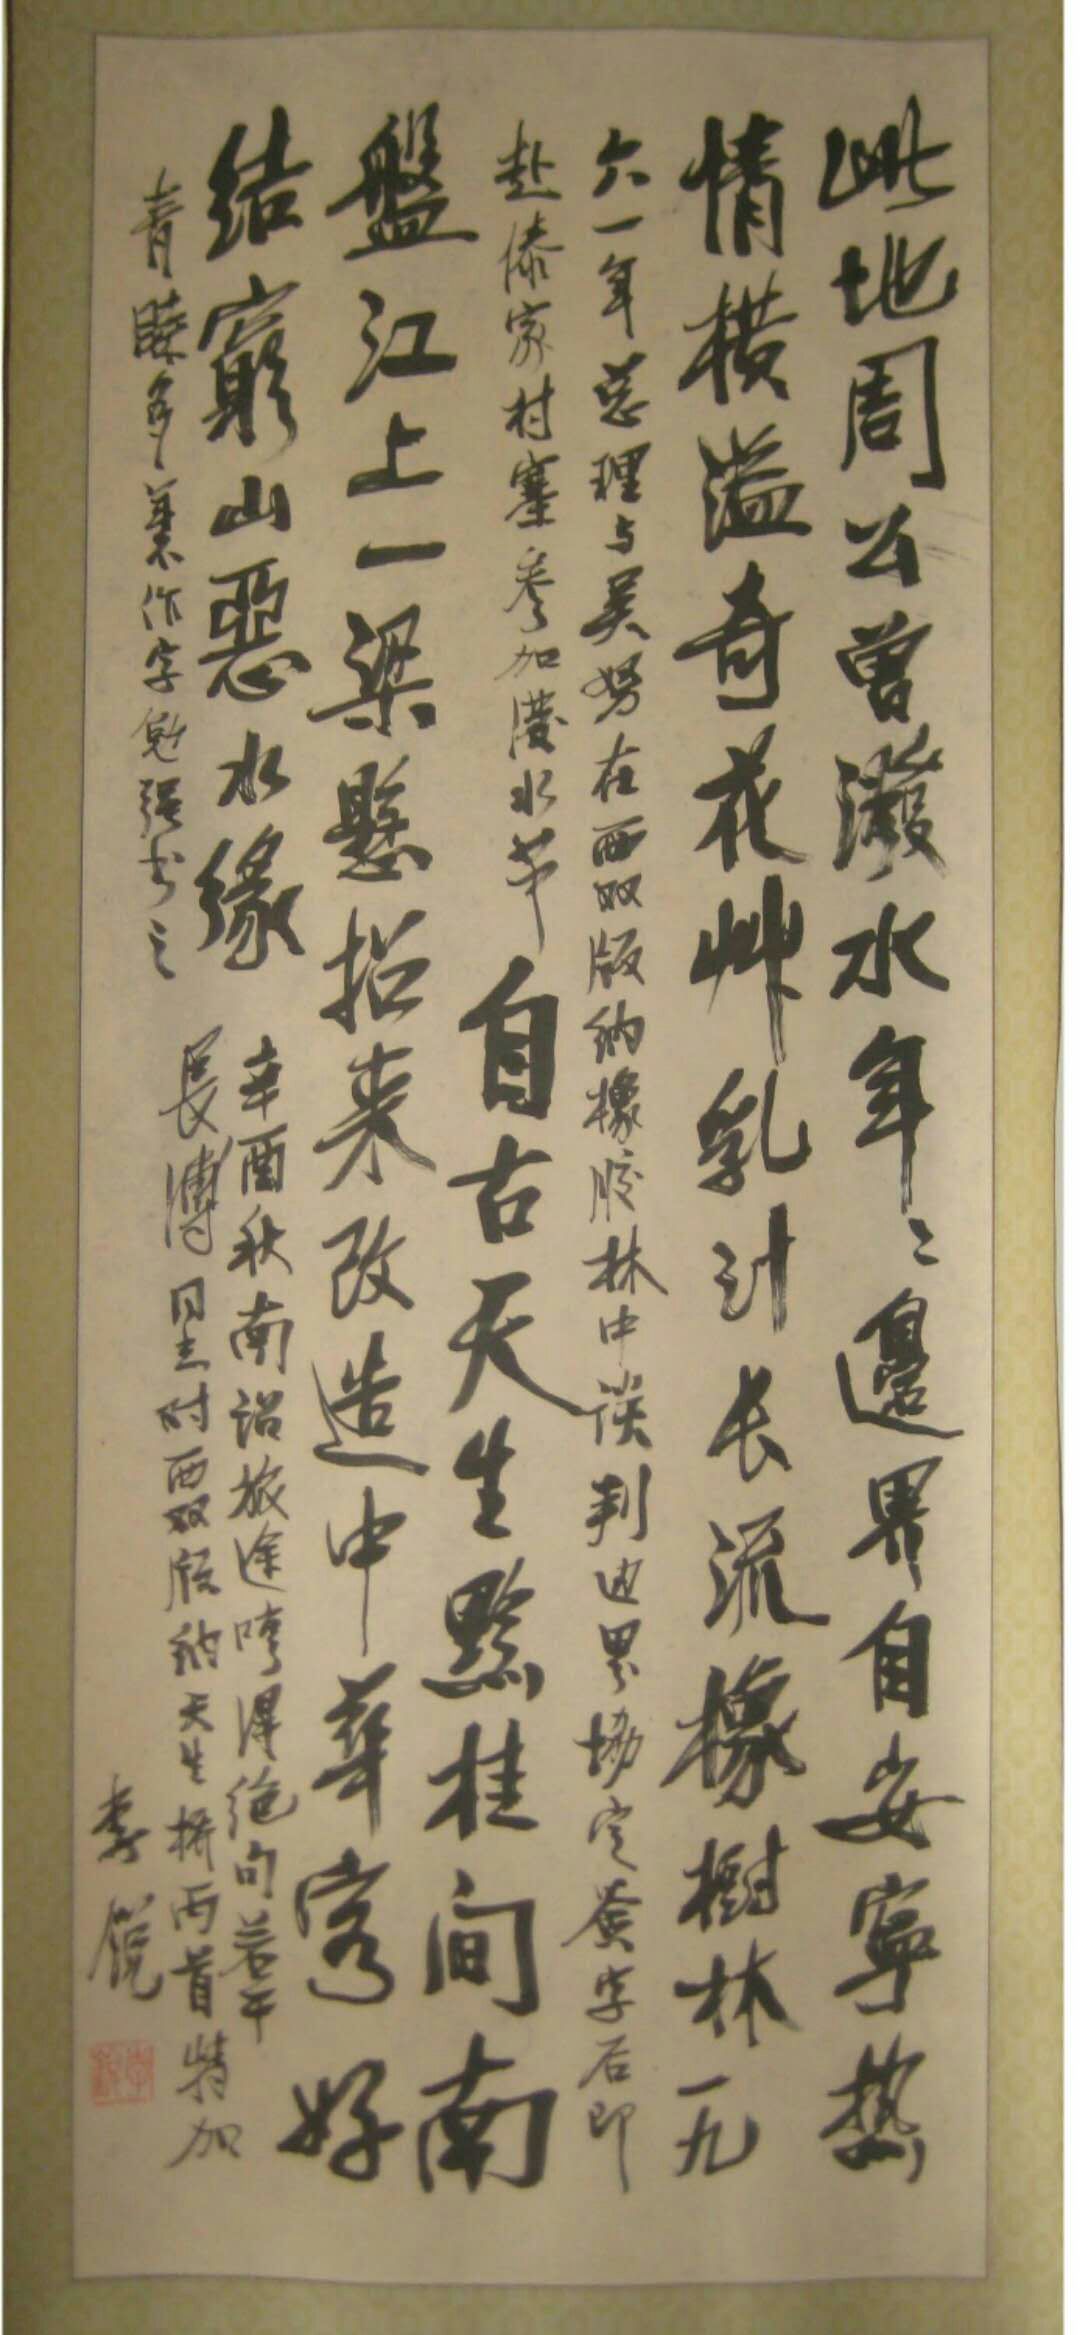 此地周公曾泼水年年边界自安宁热
情横溢奇花草乳汁长流橡树林一九
六一年总理与吴努在西双版纳橡胶林中谈判边界协定签字后即
赴傣家村寨参加泼水节自古天生黔桂间南
盘江上一梁悬招来改造中华客好
结穷山恶水缘
辛酉秋南诏旅途吟得绝句若干
长溥同志对西双版纳天生桥两首特加
青睐多蒙作字勉强书之
李锐